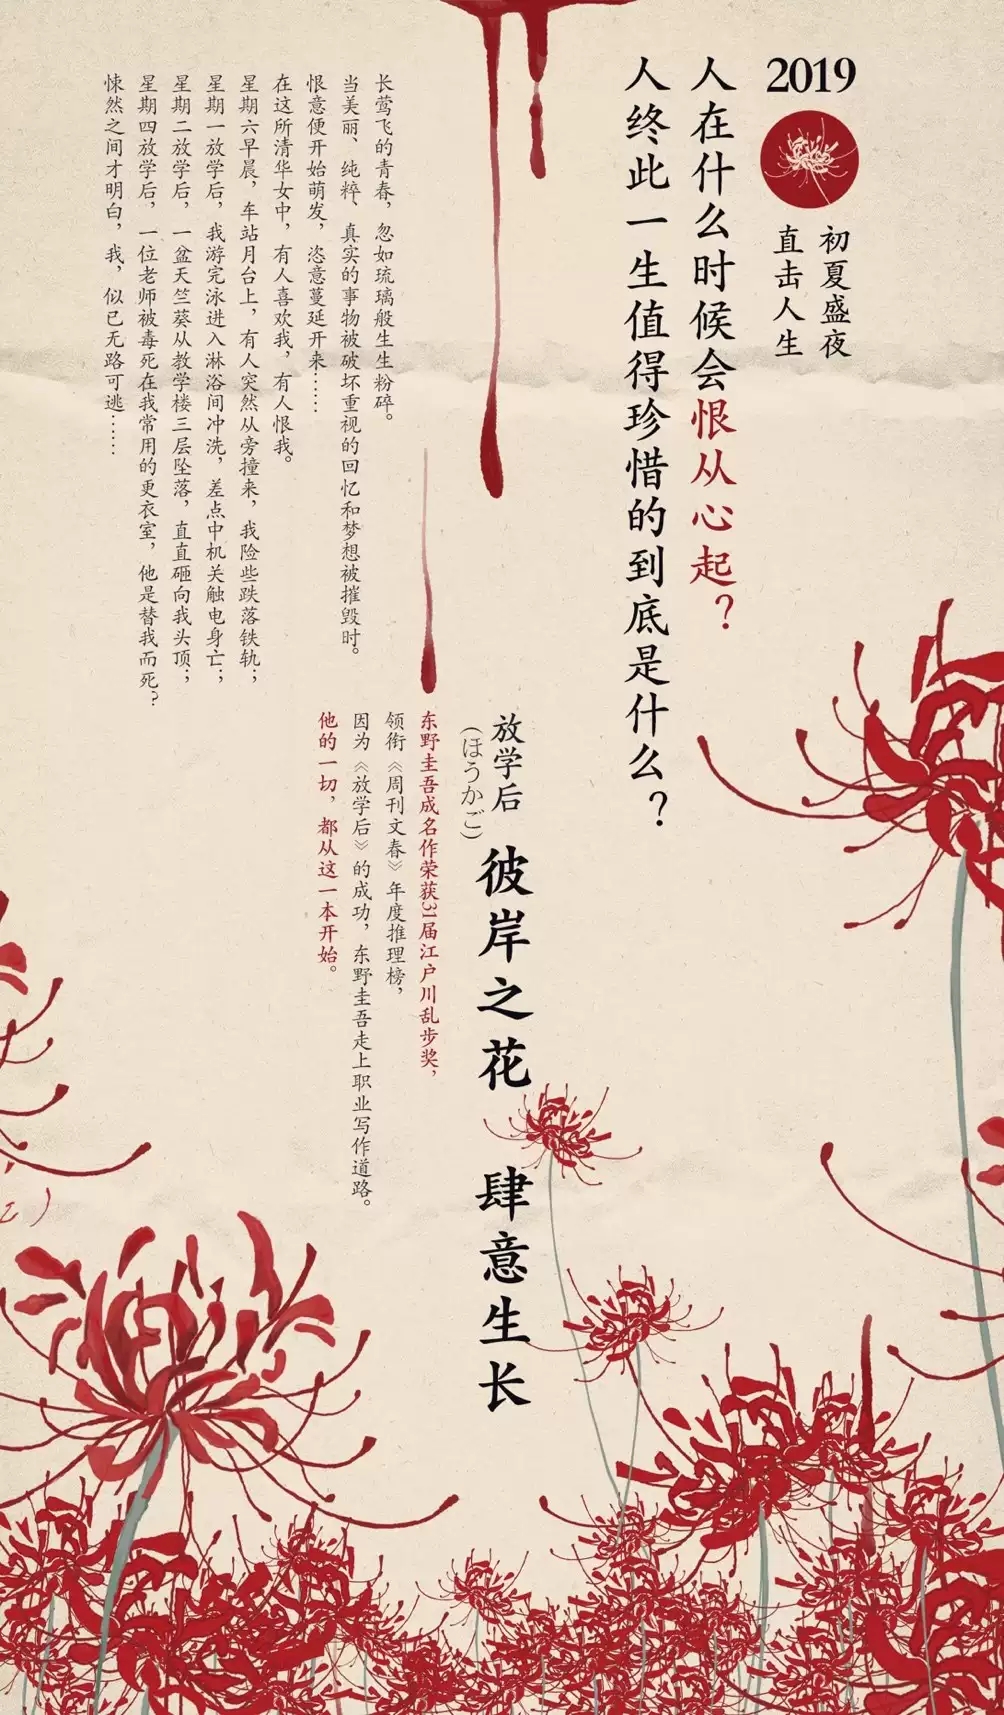 2019
初夏盛夜
直击人生
人在什么时候会恨从心起？
人终此一生值得珍惜的到底是什么？
长莺飞的青春，忽如琉璃般生生粉碎。
当美丽、纯粹、真实的事物被破坏重视的回忆和梦想被摧毁时。
恨意便开始萌发，恣意蔓延开来……
在这所清华女中，有人喜欢我，有人恨我。
星期六早晨，车站月台上，有人突然从旁撞来，我险些跌落铁轨；
星期一放学后，我游完泳进入淋浴间冲洗，差点中机关触电身亡；
星期二放学后，一盆天竺葵从教学楼三层坠落，直直砸向我头顶；
星期四放学后，一位老师被毒死在我常用的更衣室，他是替我而死？
悚然之间才明白，我，似已无路可逃……
放学后
（ほうかご）
彼岸之花 肆意生长
东野圭吾成名作荣获31届江户川乱步奖，
领衔《周刊文春》年度推理榜，
因为《放学后》的成功，东野圭吾走上职业写作道路。
他的一切，都从这一本开始。